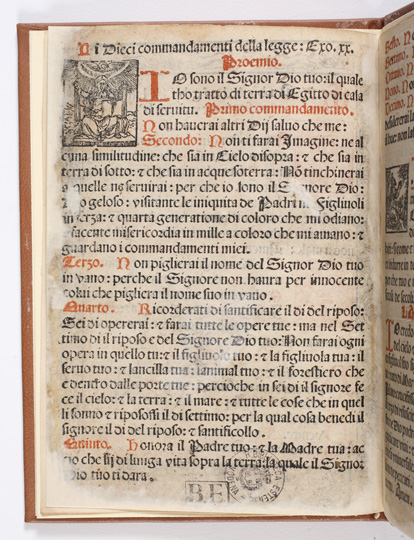 Li Dieci commandamenti della legge: Exo. xx.
Proemio.
IO sono il Signor Dio tuo: il quale
tho tratto di terra di Egitto di casa
di servitu. Primo commandamento.
Non haverai altri Dij salvo che me:
Secondo: Non ti farai Imagine: ne al
cuna similitudine: che sia in Cielo disopra: & che sia in
terra di sotto: & che sia in acque soterra: Nō t'inchinerai
a quelle ne servirai: per che io sono il Signore Dio:
geloso: visitante le iniquita de Padri in Figlinoli
in terza: & quarta generatione di coloro che mi odiano:
faccente misericordia in mille a coloro che mi amano: &
guardano i commandamenti miei.
Terzo. Non piglierai il nome del Signor Dio tuo
in vano: perche il Signore non haura per innocente
colui che pigliera il nome suo in vano.
Quarto. Ricorderati di santificare il di del riposo:
Sei di opererai: & farai tutte le opere tue: ma nel Set
timo di il riposo e del Signore Dio tuo: Non farai ogni
opera in quello tu: & il figliuolo tuo: & la figliuola tua: il
servo tuo: & l'ancilla tua: l'animal tuo: & il forestiero che
e dentro dalle porte tue: percioche in sei di il signore fe
ce il cielo: & la terra: & il mare: & tutte le cose che in quel
li sonno & riposossi il di settimo: per la qual cosa benedi il
signore il di del riposo: & santificollo.
Quinto. Honora il Padre tuo: & la Madre tua: ac
cio che sij di lunga vita sopra la terra: la quale il Signor
Dio tuo ti dara.
B.E.